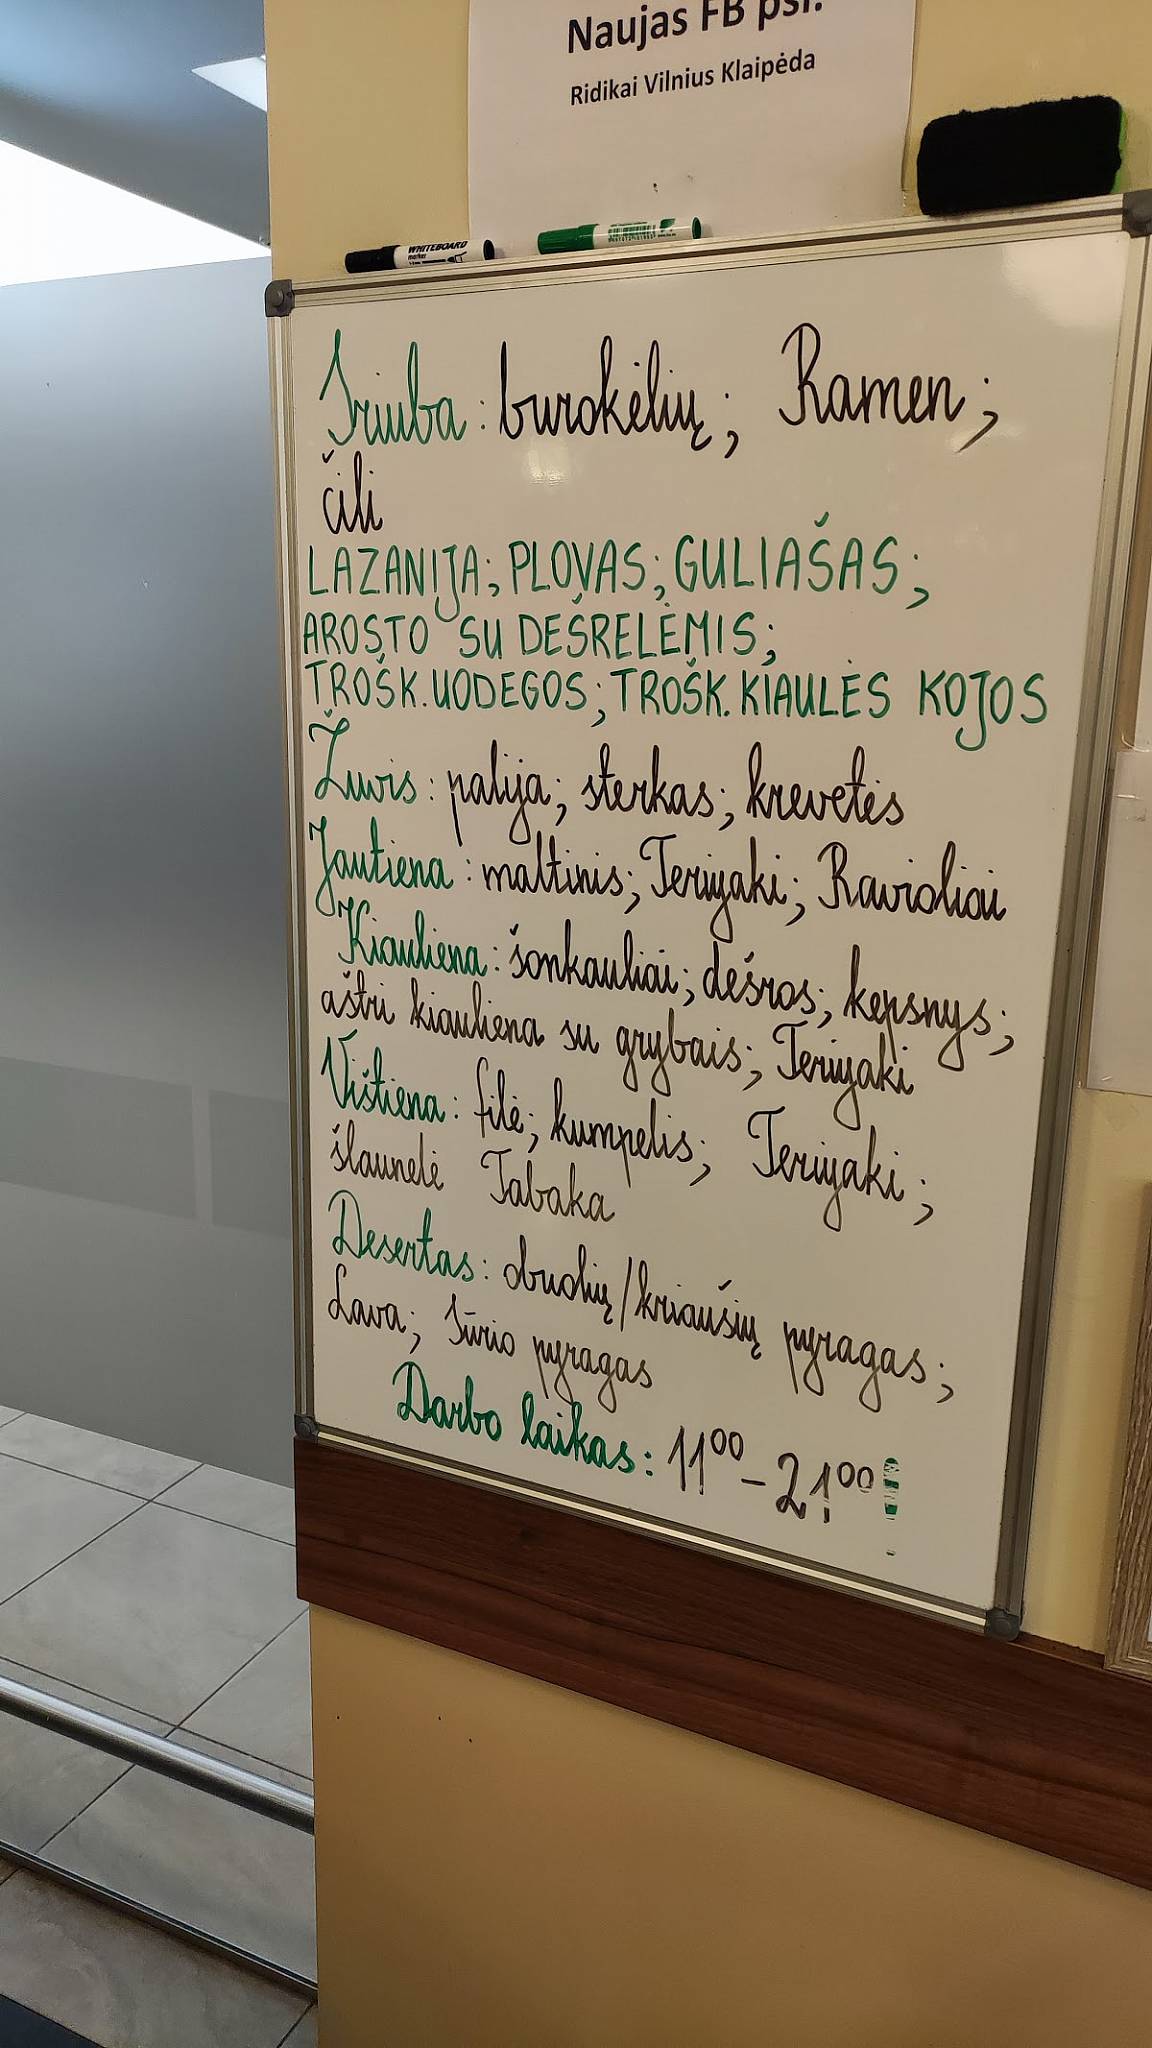 Naujas FB psl.
Ridikai Vilnius Klaipėda
WHITEBOARD
marker
Sriuba: burokėlių; Ramen;
čili
LAZANIJA; PLOVAS; GULIAŠAS;
AROSTO SU DEŠRELĖMIS;
TROŠK. UODEGOS; TROŠK. KIAULĖS KOJOS
Žuvis: palija; sterkas; krevetės
Jautiena: maltinis; Teriyaki; Ravioliai
Kiauliena: šonkauliai; dešros; kepsnys;
aštri kiauliena su grybais; Teriyaki
Vištiena: filė; kumpelis; Teriyaki;
šlaunelė Tabaka
Desertas: obuolių/kriaušių pyragas;
Lava; Sūrio pyragas
Darbo laikas: 11⁰⁰-21⁰⁰!